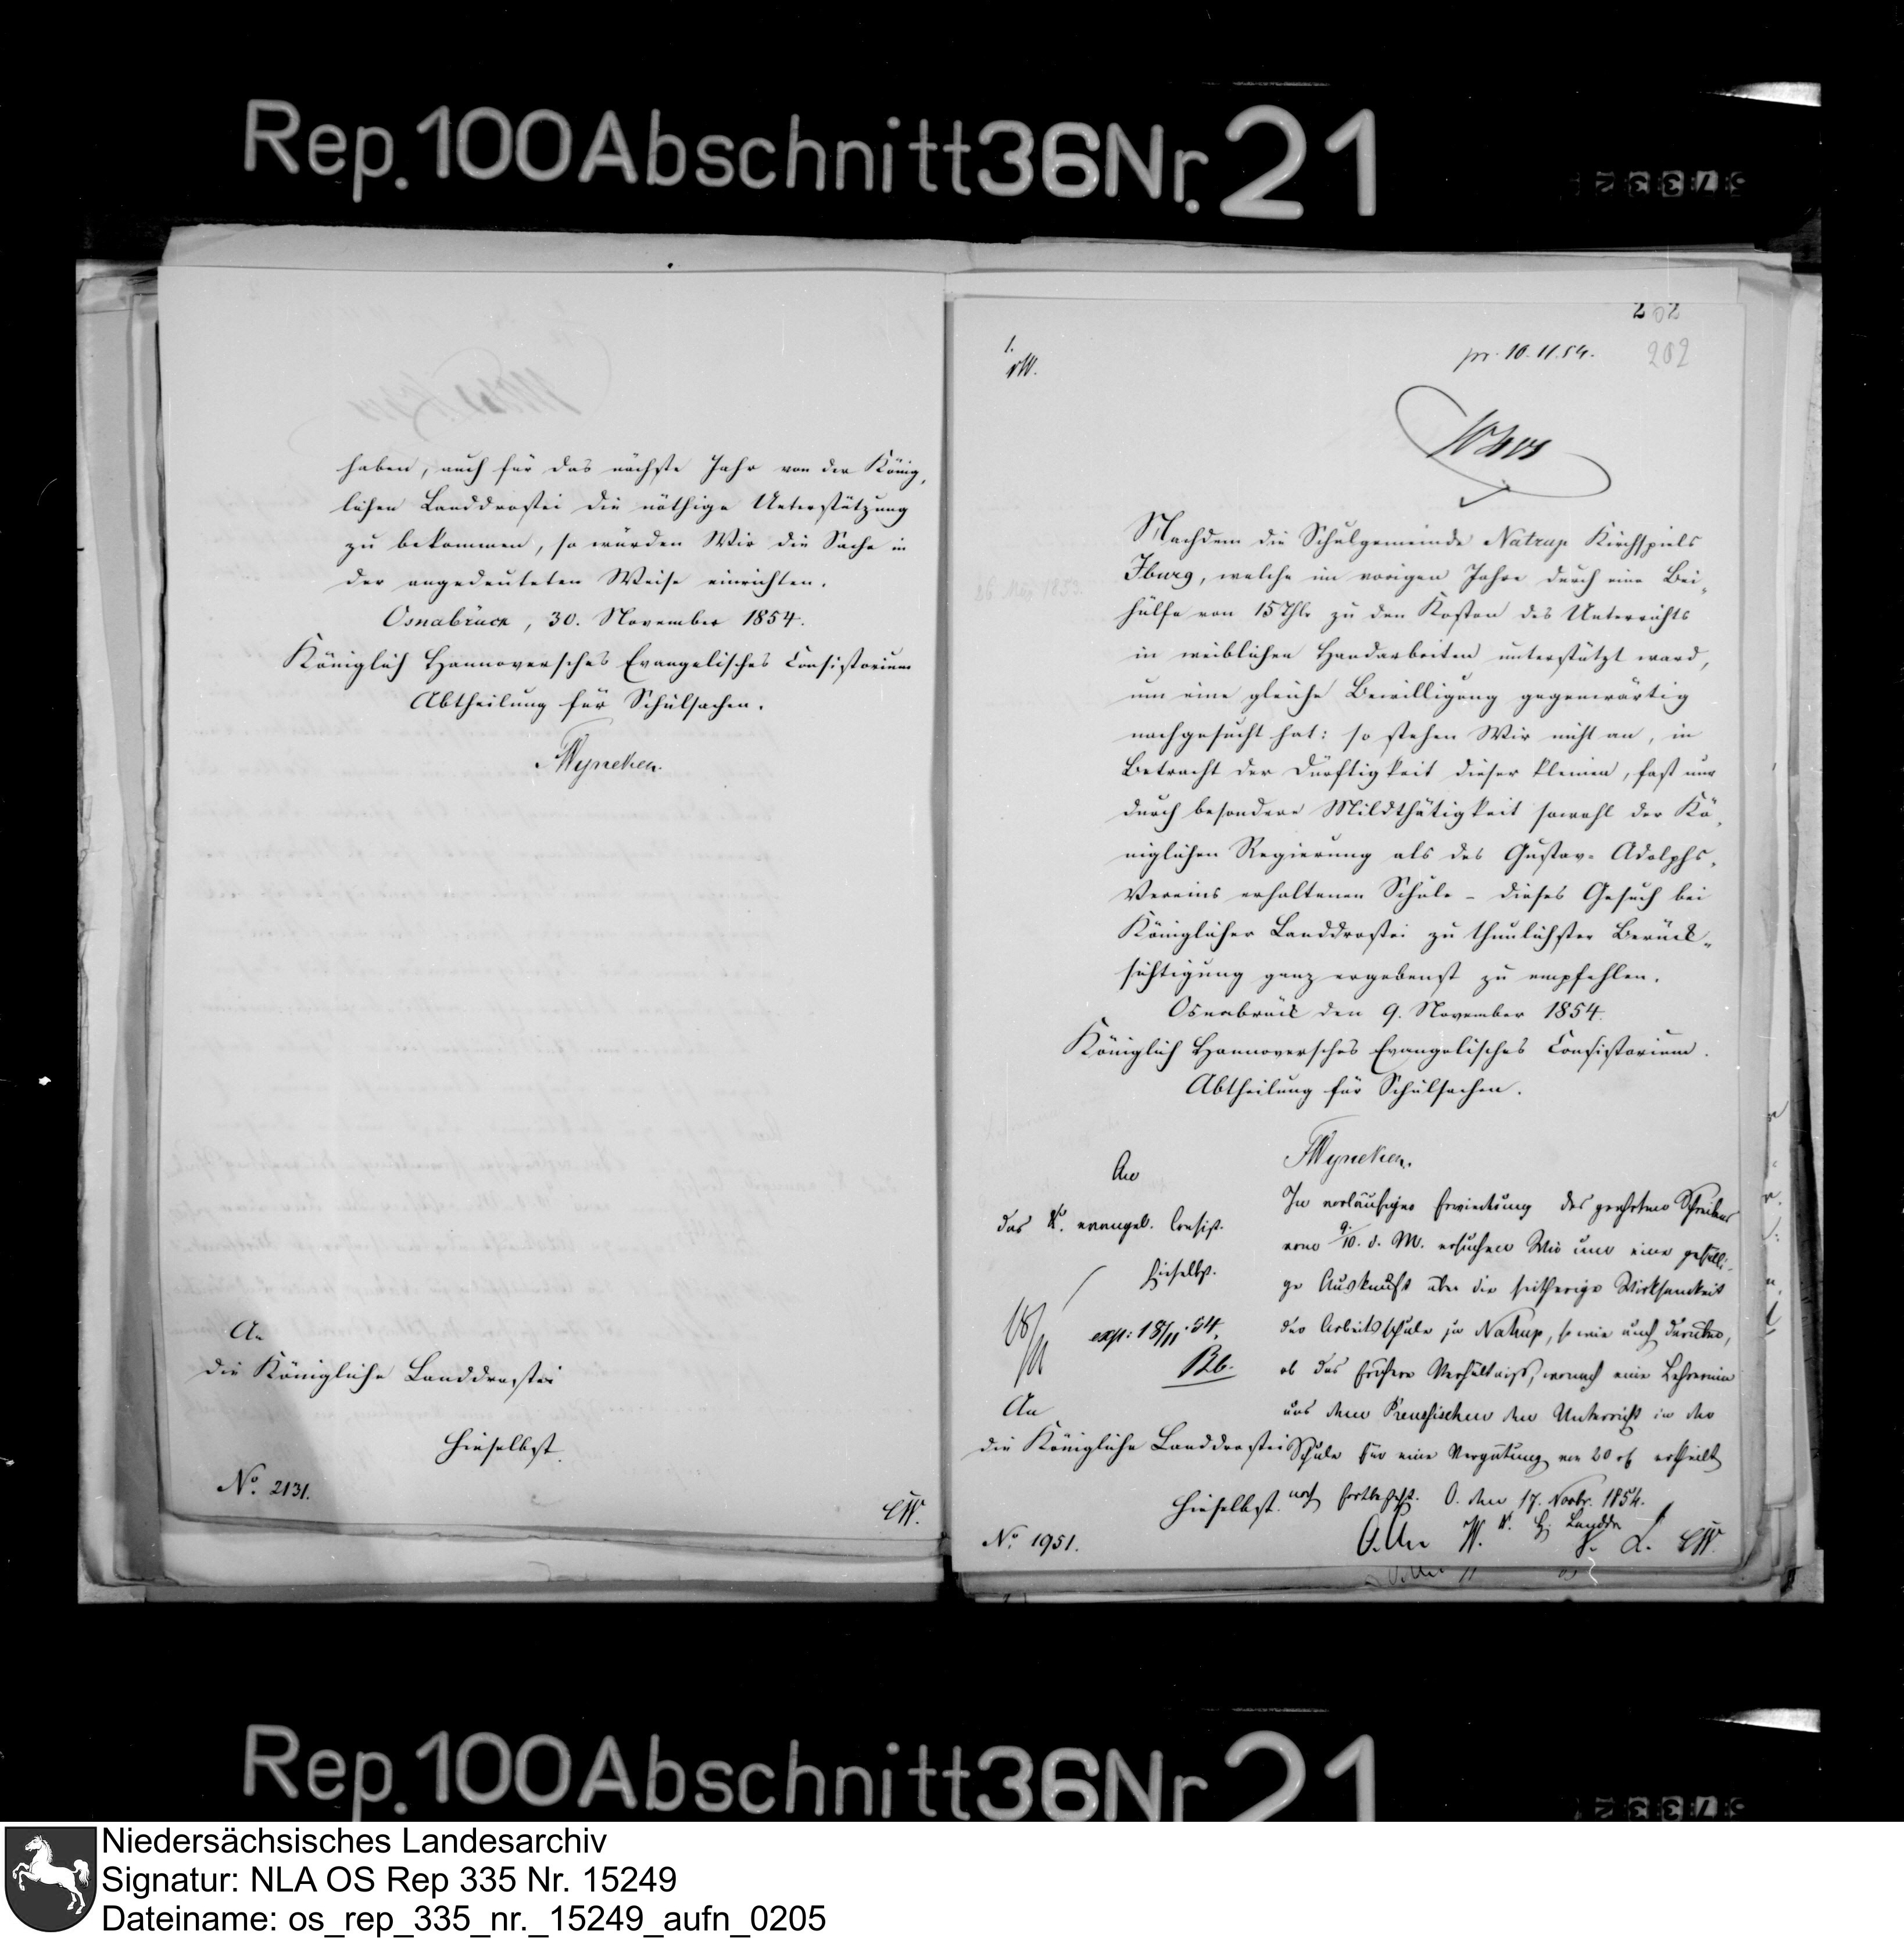 Rep. 100 Abschnitt 36 Nr. 21
haben, auch für das nächste Jahr von der König,
lichen Landdrostei die nöthige Unterstützung
zu bekommen, so würden Wir die Sache in
der angedeuteten Weise einrichten.
Osnabrück, 30. November 1854.
Königlich Hannoversches Evangelisches Consistorium
Abtheilung für Schulsachen.
Wyneken.
An
die Königliche Landdrostei
hieselbst.
No. 2131.
202
202
1.
pr. 10.11.54.
Nachdem die Schulgemeinde Natrup Kirchspiels
Iburg, welche im vorigen Jahre durch eine Bei„
hülfe von 15 Thlr zu den Kosten des Unterrichts
in weiblichen Handarbeiten unterstützt ward,
um eine gleiche Bewilligung gegenwärtig
nachgesucht hat: so stehen Wir nicht an, in
Betracht der Dürftigkeit dieser kleinen, fast nur
durch besondere Mildthätigkeit sowohl der Kö„
niglichen Regierung als des Gustav-Adolphs„
Vereins erhaltenen Schule - dieses Gesuch bei
Königlicher Landdrostei zu thunlichster Berück„
sichtigung ganz ergebenst zu empfehlen.
Osnabrück den 9. November 1854.
Königlich Hannoversches Evangelisches Consistorium.
Abtheilung für Schulsachen.
Wyneken.
An
das K. evangel. Consist.
hieselbst.
exp: 18/11.54.
In vorläufiger Erwiederung des geehrten Schreibens
vom 9./10. d. M. ersuchen Wir um eine gefälli-
ge Auskunft über die seitherige Wirksamkeit
der Arbeitsschule zu Natrup, so wie auch darüber,
ob das frühere Verhältniß, wonach eine Lehrerin
aus dem Preussischen den Unterricht in der
Schule für eine Vergütung von 20 rt ertheilt
noch fortbesteht. O. den 17. Novbr. 1854.
K. H. Landdr.
An
die Königliche Landdrostei
hieselbst.
No. 1951.
Rep. 100 Abschnitt 36 Nr. 21
Niedersächsisches Landesarchiv
Signatur: NLA OS Rep 335 Nr. 15249
Dateiname: os_rep_335_nr._15249_aufn_0205